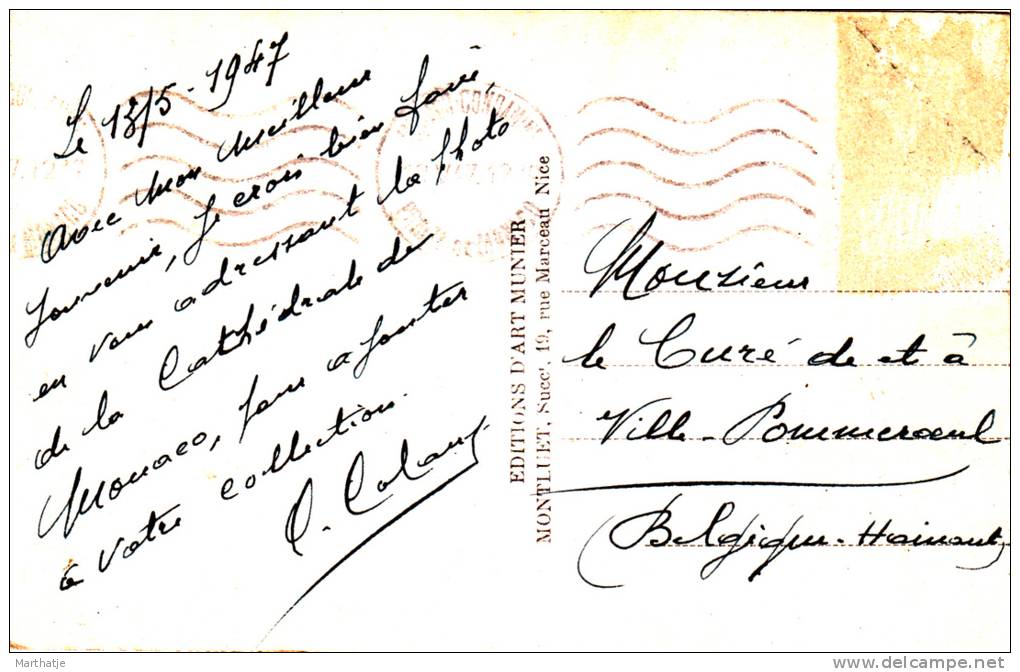 Le 13/5-1947
Avec mon meilleur
souvenir, je crois bien faire,
en vous adressant la photo
de la Cathédrale de
Monaco, pour ajouter
à votre collection.
EDITIONS D'ART MUNIER
MONTLUET, Succ', 19, rue Marceau Nice
Monsieur
le Curé de et à
Ville-Pommeroeul
(Belgique-Hainaut)
Marthatje
www.delcampe.net